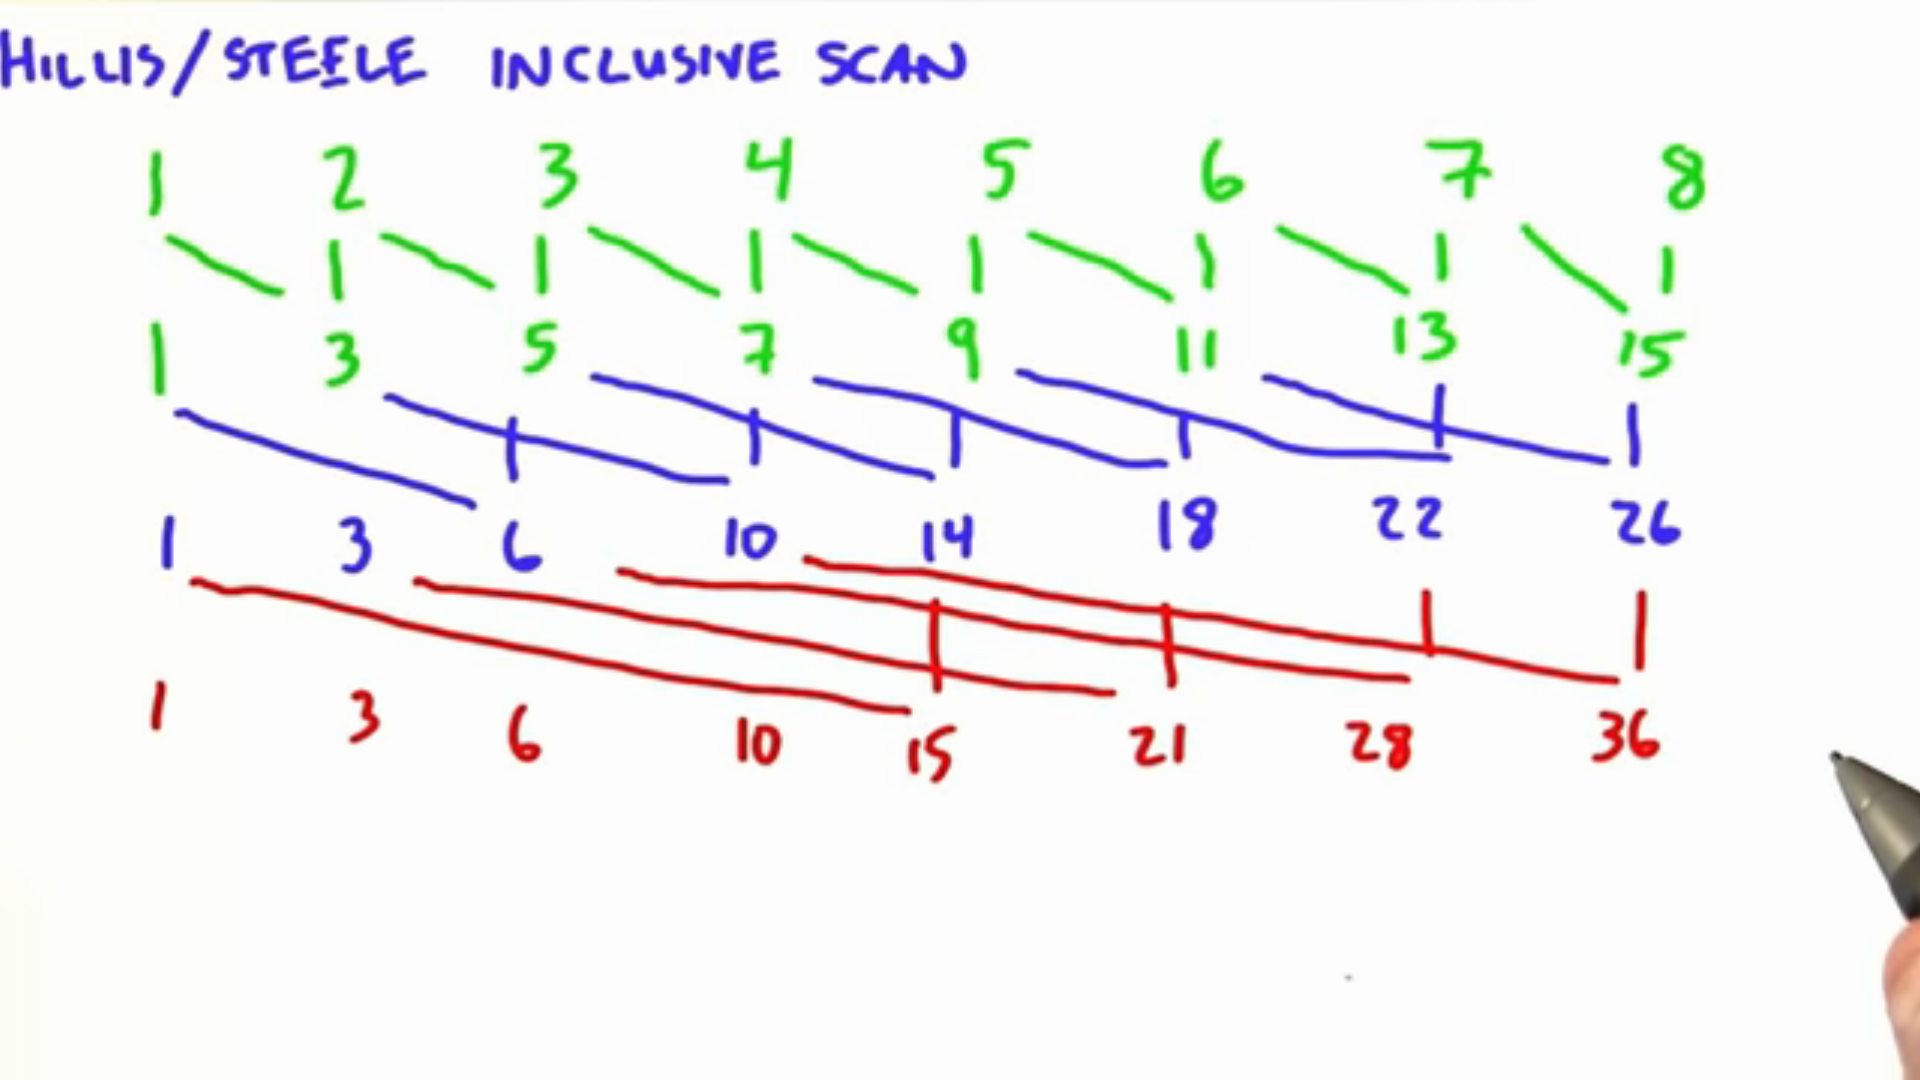 HILLIS/STEELE INCLUSIVE SCAN
1 2 3 4 5 6 7 8
1 3 5 7 9 11 13 15
1 3 6 10 14 18 22 26
1 3 6 10 15 21 28 36